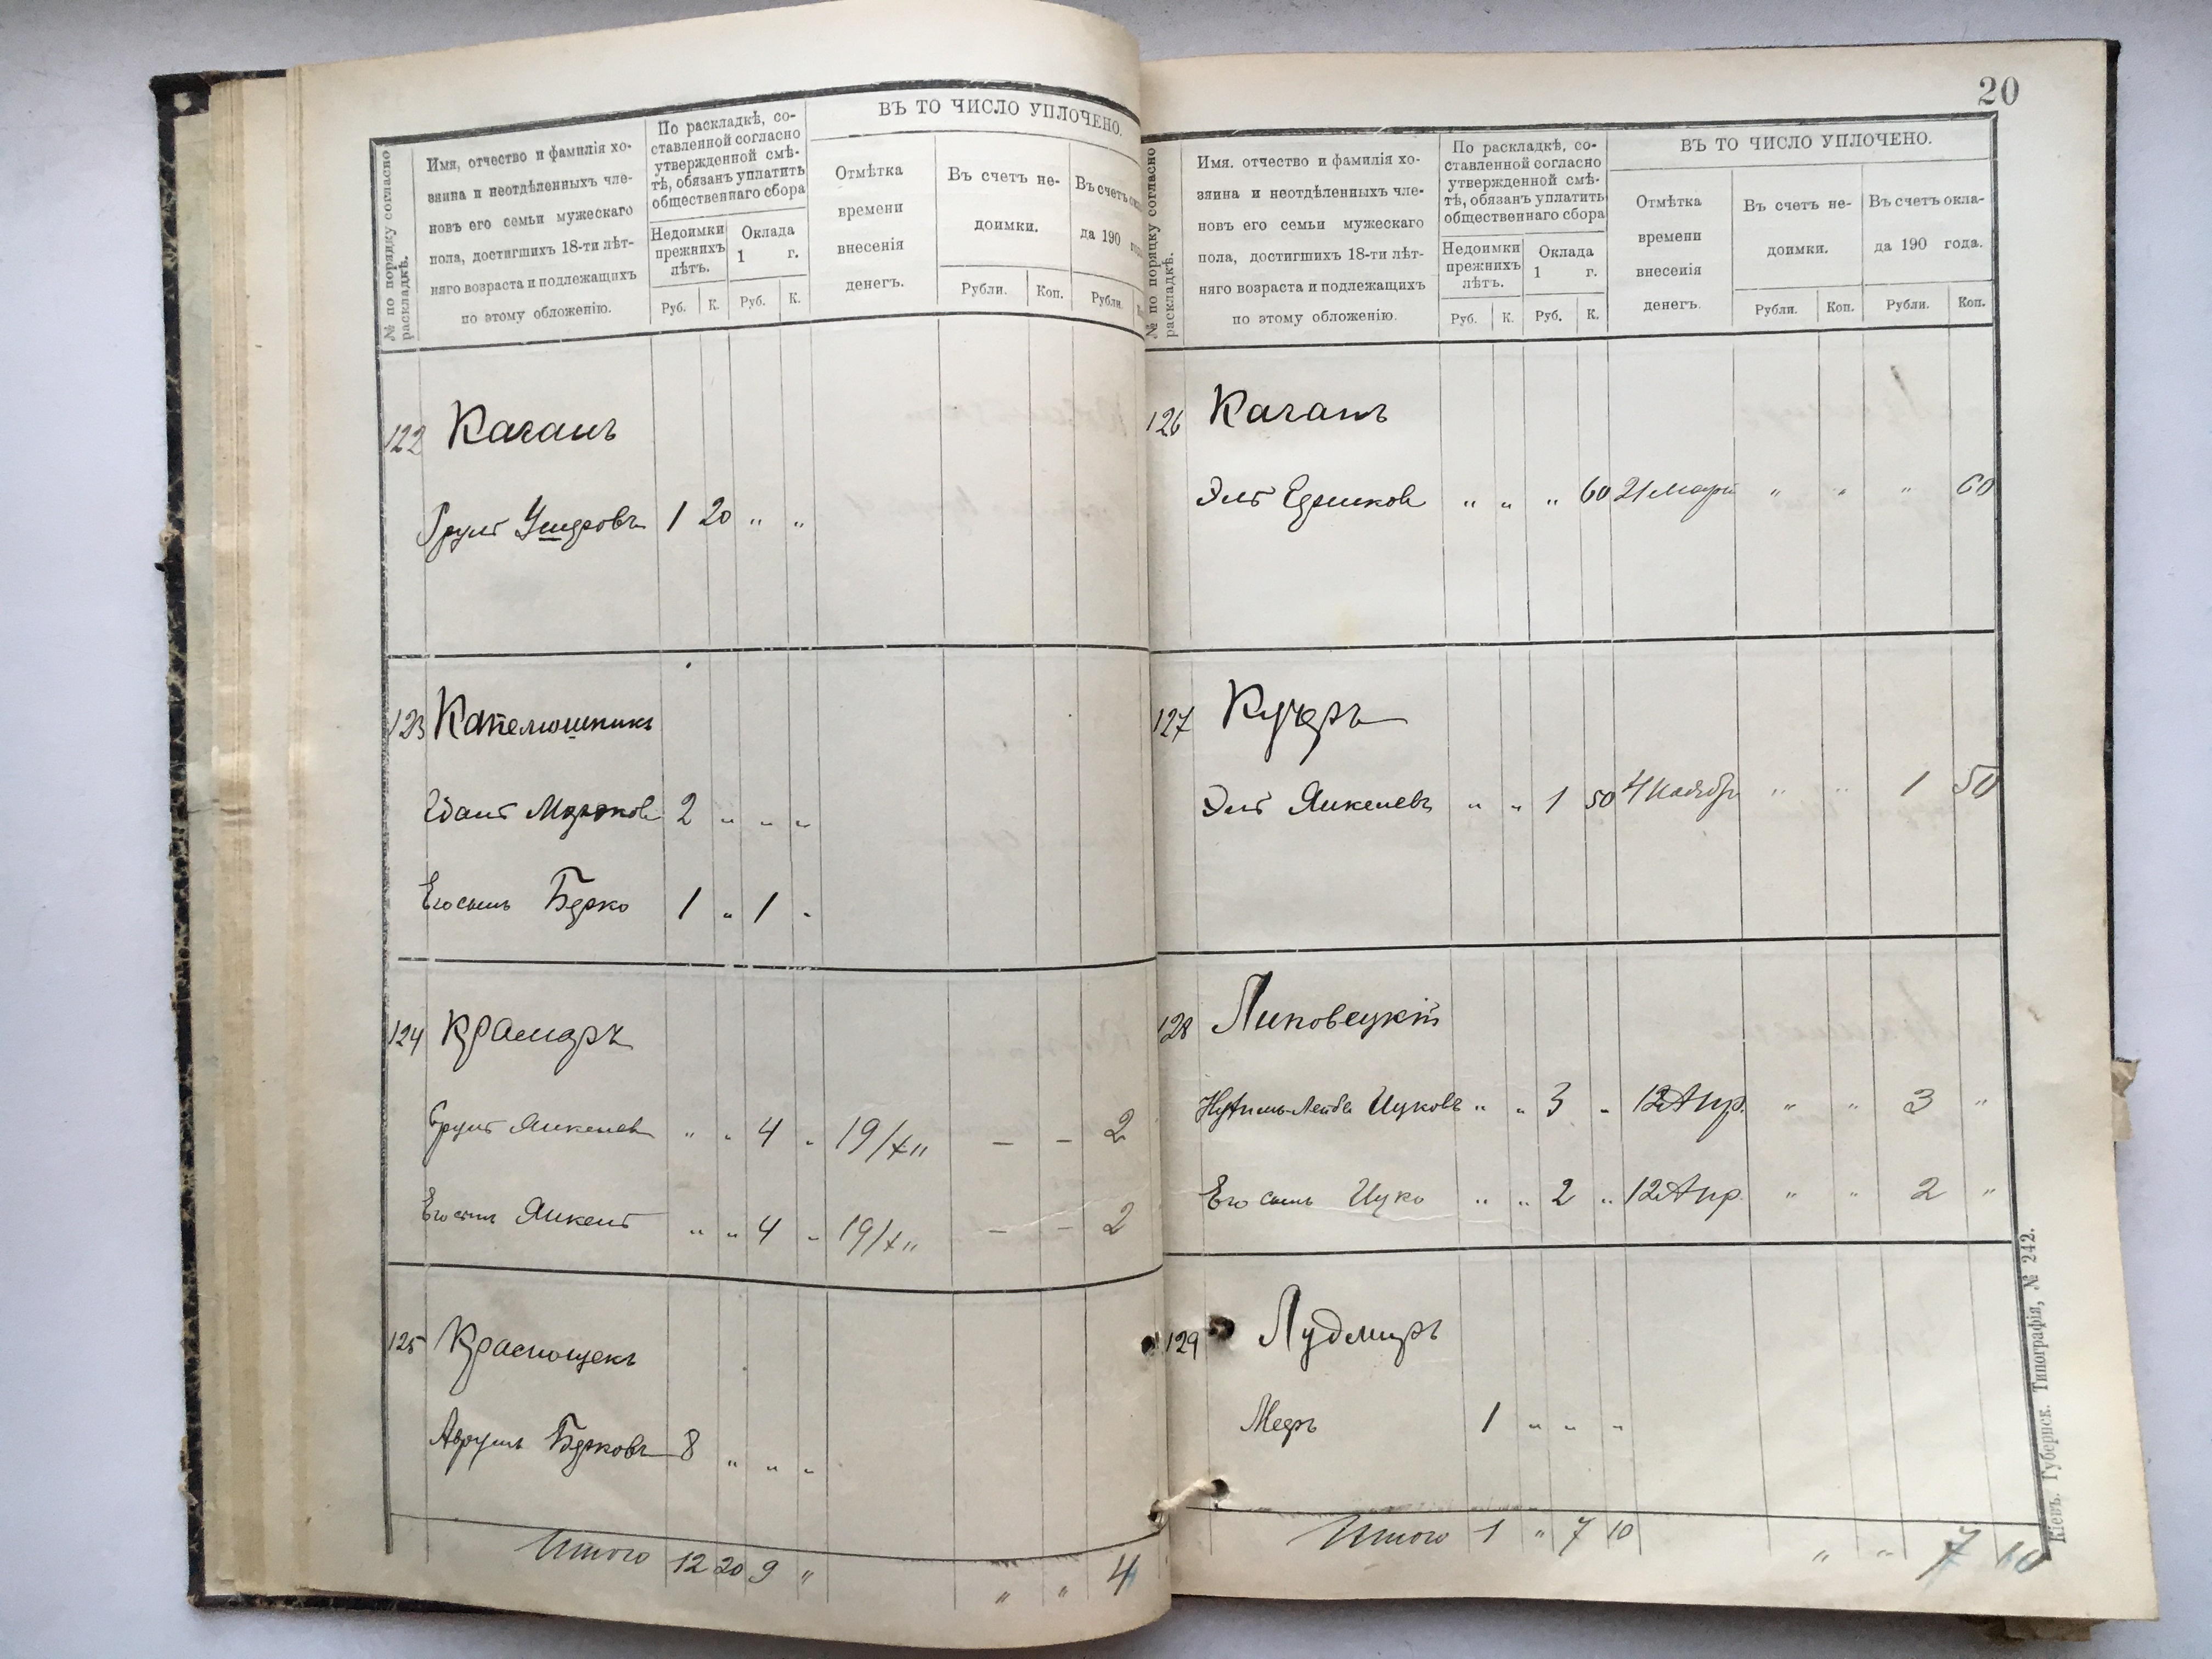 ВЪ ТО ЧИСЛО УПЛОЧЕНО.
№ по порядку согласно раскладкѣ.
Имя, отчество и фамилія хо-
зяина и неотдѣленныхъ чле-
новъ его семьи мужескаго
пола, достигшихъ 18-ти лѣт-
няго возраста и подлежащихъ
по этому обложенію.
По раскладкѣ, со-
ставленной согласно
утвержденной смѣ-
тѣ, обязанъ уплатить
общественнаго сбора
Недоимки
прежнихъ
лѣтъ.
Оклада
1 г.
Руб. К. Руб. К.
Отмѣтка
времени
внесенія
денегъ.
Въ счетъ не-
доимки.
Рубли. Коп.
Въ счетъ
да 190
Рубли.
122 Каганъ
Срулъ 1 20 " "
123 Капелюшникъ
2 " " "
Его сынъ Берко 1 " 1 "
124 Крамаръ
Срулъ Янкелев " " 4 " 19/XII — — 2
Его сынъ Янкель " " 4 " 19/XII — — 2
125 Краснощекъ
Аврумъ Берковъ 8 " " "
Итого 12 20 9 " " " 4
20
ВЪ ТО ЧИСЛО УПЛОЧЕНО.
№ по порядку согласно раскладкѣ.
Имя. отчество и фамилія хо-
зяина и неотдѣленныхъ чле-
новъ его семьи мужескаго
пола, достигшихъ 18-ти лѣт-
няго возраста и подлежащихъ
по этому обложенію.
По раскладкѣ, со-
ставленной согласно
утвержденной смѣ-
тѣ, обязанъ уплатить
общественнаго сбора
Недоимки
прежнихъ
лѣтъ.
Оклада
1 г.
Руб. К. Руб. К.
Отмѣтка
времени
внесенія
денегъ.
Въ счетъ не-
доимки.
Рубли. Коп.
Въ счетъ окла-
да 190 года.
Рубли. Коп.
126 Каганъ
Эль " " " 60 21 " " " 60
127 Кучеръ
Эль Янкелевъ " " 1 50 4 Ноябр " " 1 50
128 Липовецкій
Нутель-Лейба Ицковъ " " 3 " 12 Апр. " " 3 "
Его сынъ Ицко " " 2 " 12 Апр. " " 2 "
129 Лудмиръ
Мееръ 1 " " "
Итого 1 " 7 10 " " 7 10
Кіевъ. Губернск. Типографія, № 242.